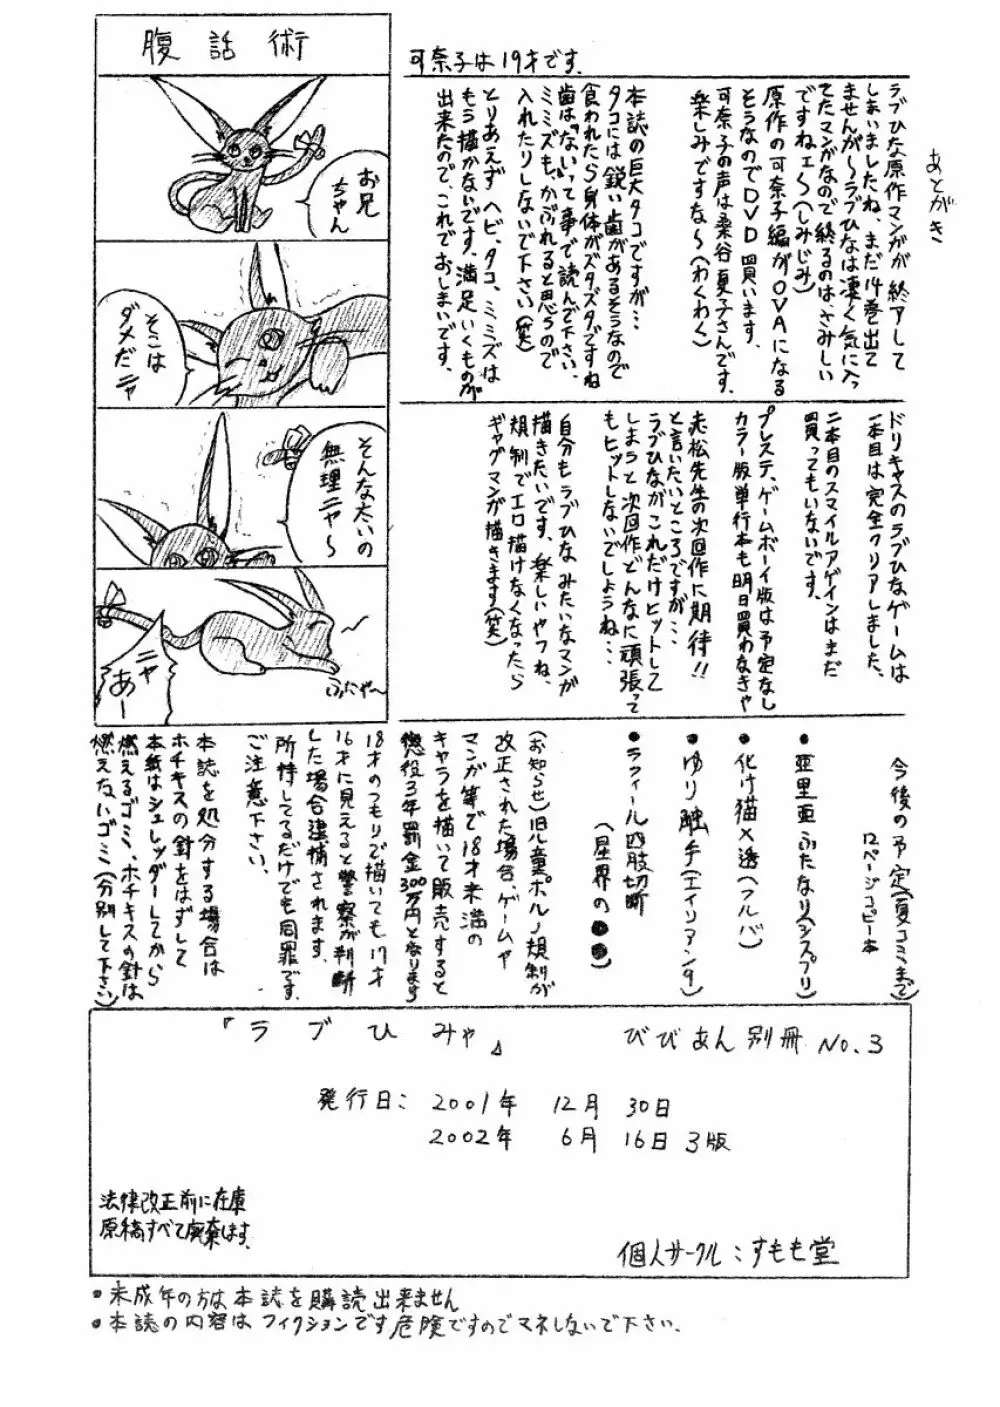 あとがき
可奈子は19才です。
ラブひな原作マンガが終アして
しまいましたね、まだ14巻出て
ませんが〜ラブひなは凄く気に入っ
てたマンガなので終るのは、さみしい
ですねェ〜(しみじみ)
原作の可奈子編がOVAになる
そうなのでDVD買います。
可奈子の声は桑谷夏子さんです。
楽しみですな〜(わくわく)
本誌の巨大タコですが…
タコには鋭い歯があるそうなので
食われたら身体がズタズタですね
歯は「ない」って事で読んで下さい、
ミミズも、かぶれると思うので
入れたりしないで下さい(笑)
とりあえず ヘビ、タコ、ミミズは
もう描かないです。満足いくものが
出来たので、これでおしまいです。
ドリキャスのラブひなゲームは
一本目は完全クリアしました、
二本目のスマイルアゲインはまだ
買ってもいないです。
プレステ、ゲームボーイ版は予定なし
カラー版単行本も明日買わなきゃ
赤松先生の次回作に期待!!
と言いたいところですが…
ラブひながこれだけヒットして
しまうと次回作どんなに頑張って
もヒットしないでしょうね…
自分もラブひなみたいなマンガ
描きたいです、楽しいやつね、
規制でエロ描けなくなったら
ギャグマンガ描きます(笑)
腹話術
お兄
ちゃん
そこは
ダメだニャ
そんな太いの
無理ニャ〜
ニャ
あー
ふにゃ〜
今後の予定(夏コミまで)
12ページコピー本
●亜里亜ふたなり(シスプリ)
●化け猫×透(フルバ)
●ゆり触手(エイリアン9)
●ラフィール四肢切断
(星界の●●)
(お知らせ)旧児童ポルノ規制が
改正された場合、ゲームや
マンガ等で18才未満の
キャラを描いて販売すると
懲役3年罰金300万円となります
18才のつもりで描いても17才
16才に見えると警察が判断
した場合逮捕されます。
所持してるだけでも同罪です
ご注意下さい。
本誌を処分する場合は
ホチキスの針をはずして
本紙はシュレッダーしてから
燃えるゴミ、ホチキスの針は
燃えないゴミ(分別して下さい)
『ラブひみゃ』 びびあん別冊 No.3
発行日: 2001年 12月 30日
2002年 6月 16日 3版
法律改正前に在庫
原稿すべて廃棄します。
個人サークル:すもも堂
●未成年の方は本誌を購読出来ません
●本誌の内容はフィクションです危険ですのでマネしないで下さい。